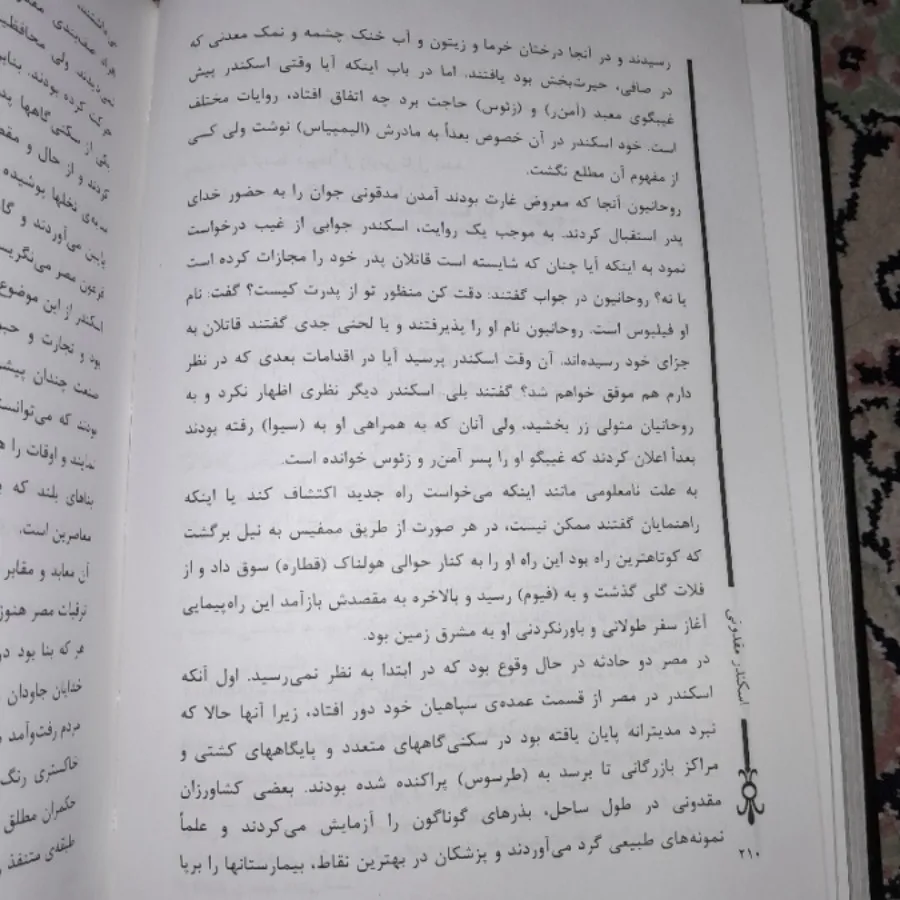 رسیدند و در آنجا درختان خرما و زیتون و آب خنک چشمه و نمک معدنی که
در صافی، حیرت‌بخش بود یافتند. اما در باب اینکه آیا وقتی اسکندر پیش
غیبگوی معبد (آمن‌ر) و (زئوس) حاجت برد چه اتفاق افتاد، روایات مختلف
است. خود اسکندر در آن خصوص بعداً به مادرش (الیمپیاس) نوشت ولی کسی
از مفهوم آن مطلع نگشت.
روحانیون آنجا که معروض غارت بودند آمدن مدقونی جوان را به حضور خدای
پدر استقبال کردند. به موجب یک روایت، اسکندر جوابی از غیب درخواست
نمود به اینکه آیا چنان که شایسته است قاتلان پدر خود را مجازات کرده است
یا نه؟ روحانیون در جواب گفتند: دقت کن منظور تو از پدرت کیست؟ گفت: نام
او فیلیوس است. روحانیون نام او را پذیرفتند و با لحنی جدی گفتند قاتلان به
جزای خود رسیده‌اند. آن وقت اسکندر پرسید آیا در اقدامات بعدی که در نظر
دارم هم موفق خواهم شد؟ گفتند بلی. اسکندر دیگر نظری اظهار نکرد و به
روحانیان متولی زر بخشید، ولی آنان که به همراهی او به (سیوا) رفته بودند
بعداً اعلان کردند که غیبگو او را پسر آمن‌ر و زئوس خوانده است.
به علت نامعلومی مانند اینکه می‌خواست راه جدید اکتشاف کند یا اینکه
راهنمایان گفتند ممکن نیست، در هر صورت از طریق ممفیس به نیل برگشت
که کوتاهترین راه بود این راه او را به کنار حوالی هولناک (قطاره) سوق داد و از
فلات گلی گذشت و به (فیوم) رسید و بالاخره به مقصدش بازآمد این راه‌پیمایی
آغاز سفر طولانی و باورنکردنی او به مشرق زمین بود.
در مصر دو حادثه در حال وقوع بود که در ابتدا به نظر نمی‌رسید. اول آنکه
اسکندر در مصر از قسمت عمده‌ی سپاهیان خود دور افتاد، زیرا آنها حالا که
نبرد مدیترانه پایان یافته بود در سکنی‌گاههای متعدد و پایگاههای کشتی و
مراکز بازرگانی تا برسد به (طرسوس) پراکنده شده بودند. بعضی کشاورزان
مقدونی در طول ساحل، بذرهای گوناگون را آزمایش می‌کردند و علماً
نمونه‌های طبیعی گرد می‌آوردند و پزشکان در بهترین نقاط، بیمارستانها را برپا
اسکندر مقدونی
۲۱۰
نمی‌دیدند ولی محافظین
حرکت کرده بودند. بنابر
یکی از سکنی گاهها
کردند و از حال و
نخلها پوشیده
پایین می‌آوردند و
فرعون مصر
اسکندر از این موضوع
بود و تجارت و
صنعت چندان
بودند که
نمایند و اوقات را
بناهای بلند که
معاصرین است.
آن معابد و مقابر
ترقیات مصر هنوز
هر که بنا بود در
خدایان جاودان
مردم رفت‌وآمد
خاکستری رنگ
حکمران مطلق
طبقه‌ی متنفذ